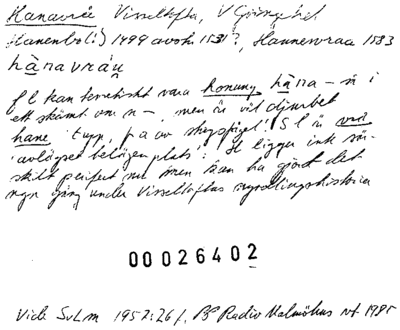 Hanavrå Visseltofta, V Göinge hd
Hanenbol(!) 1499 avskr 1531?, Hannewraa 1583
hànavráu
fl kan teoretiskt vara konung hàna – i
ett skämt om n –, men är väl djurbet
hane tupp, f a av skogsfågel! S l är vrå
'avlägset belägen plats'! H ligger inte sär-
skilt perifert nu men kan ha gjort det
ngn gång under Visseltoftas nyodlingshistoria
00026402
Vide SvLm 1957:26 f, Radio Malmöhus vt 1985